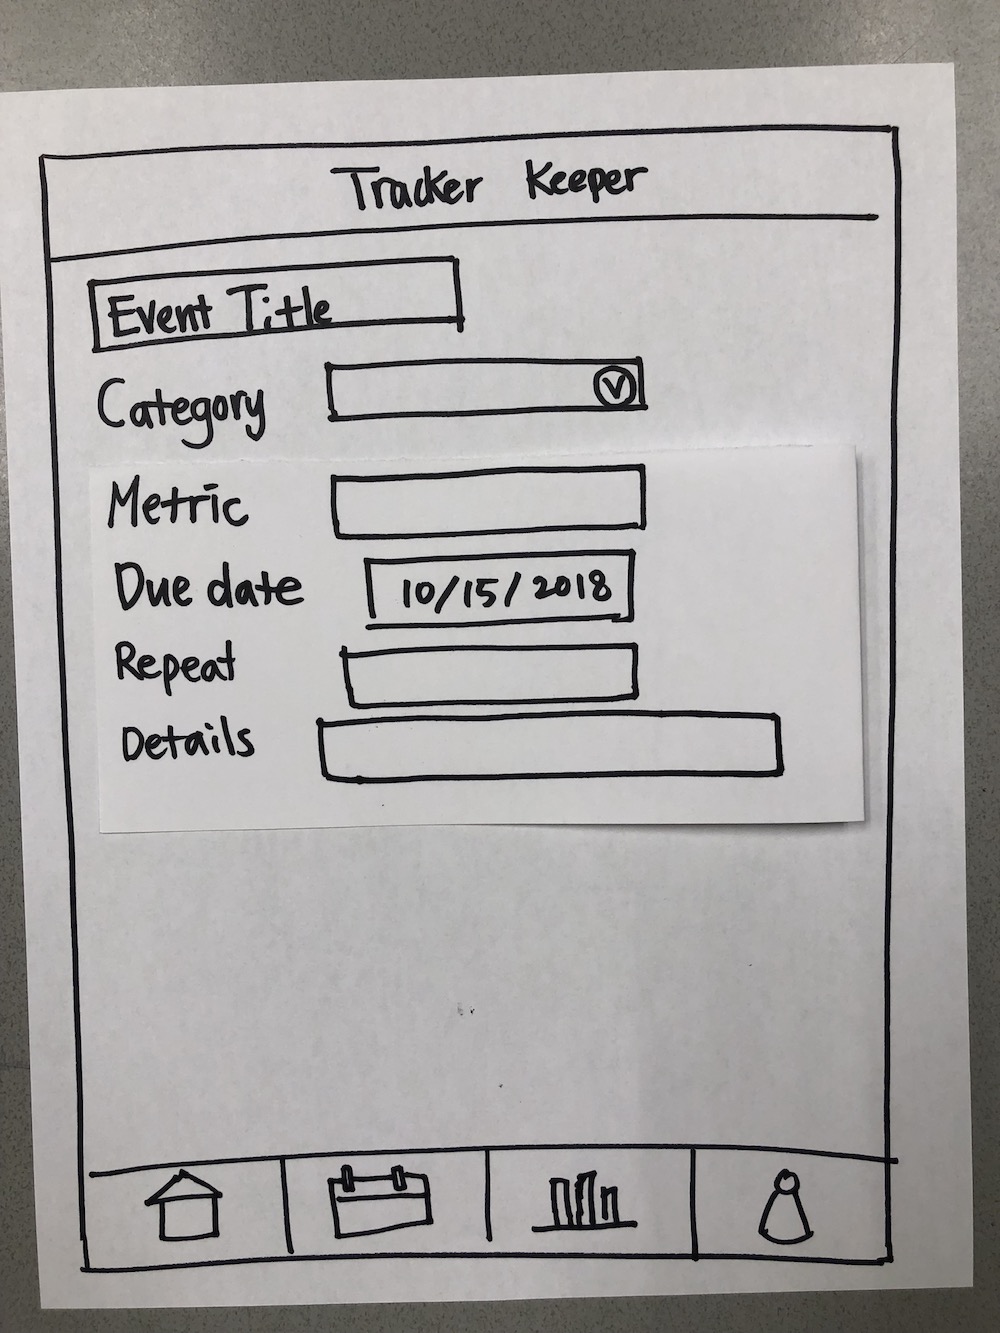 Tracker Keeper
Event Title
Category
Metric
Due date 10/15/2018
Repeat
Details